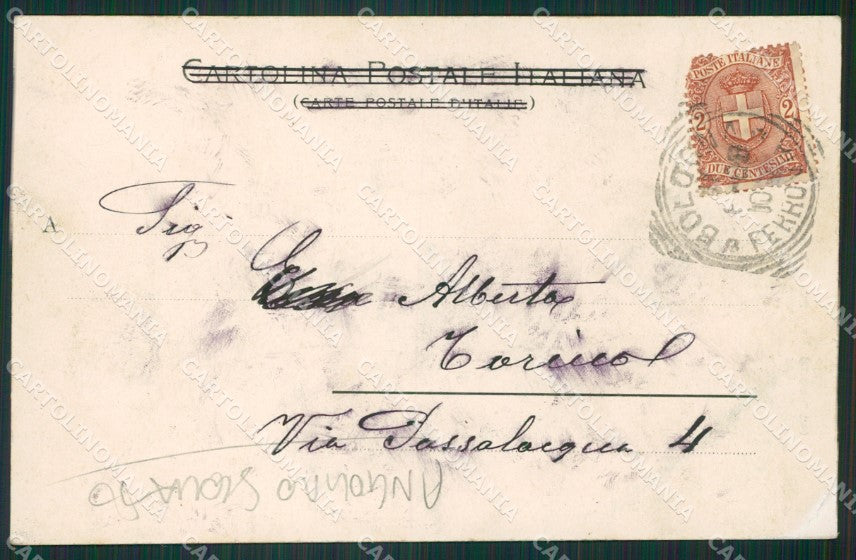 CARTOLINA POSTALE ITALIANA
(CARTE POSTALE D'ITALIE)
POSTE ITALIANE
2 2
DUE CENTESIMI
BOLOGNA FERROVIA
A Sig.
Alberta
Torino
Via Passalacqua 4
CARTOLINOMANIA